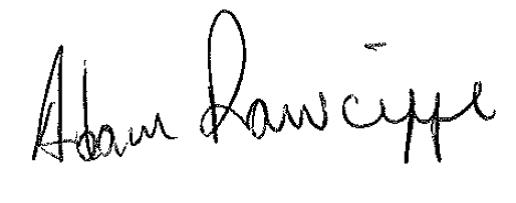 Adam Rawcliffe